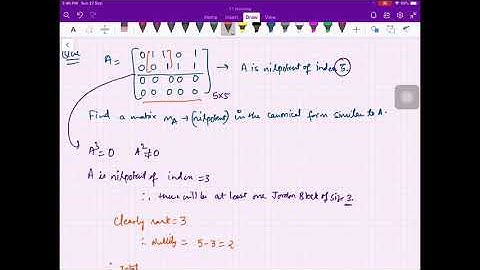 5:46 PM Sun 13 Sep
Draw
Que
A = [0 1 1 0 1
0 0 1 1 1
0 0 0 0 0
0 0 0 0 0] 5×5 → A is nilpotent of index 3.
Find a matrix M_A → (nilpotent) in the canonical form similar to A.
A³=0 A²≠0
A is nilpotent of index =3
∴ there will be at least one Jordan Block of size 3.
Clearly rank = 3
∴ Nullity = 5-3=2
∴ Total